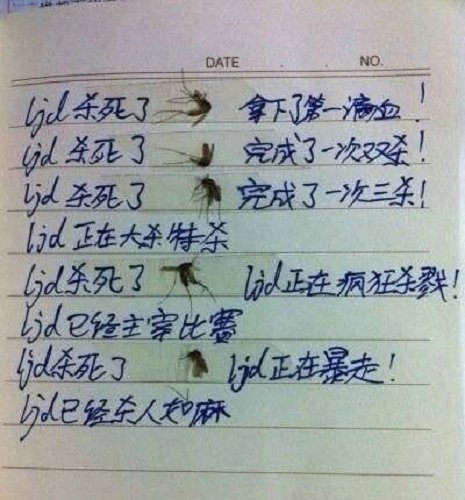 DATE . . NO.
ljd 杀死了 拿下了第一滴血!
ljd 杀死了 完成了一次双杀!
ljd 杀死了 完成了一次三杀!
ljd 正在大杀特杀
ljd 杀死了 ljd正在疯狂杀戮!
ljd已经主宰比赛
ljd杀死了 ljd正在暴走!
ljd已经杀人如麻